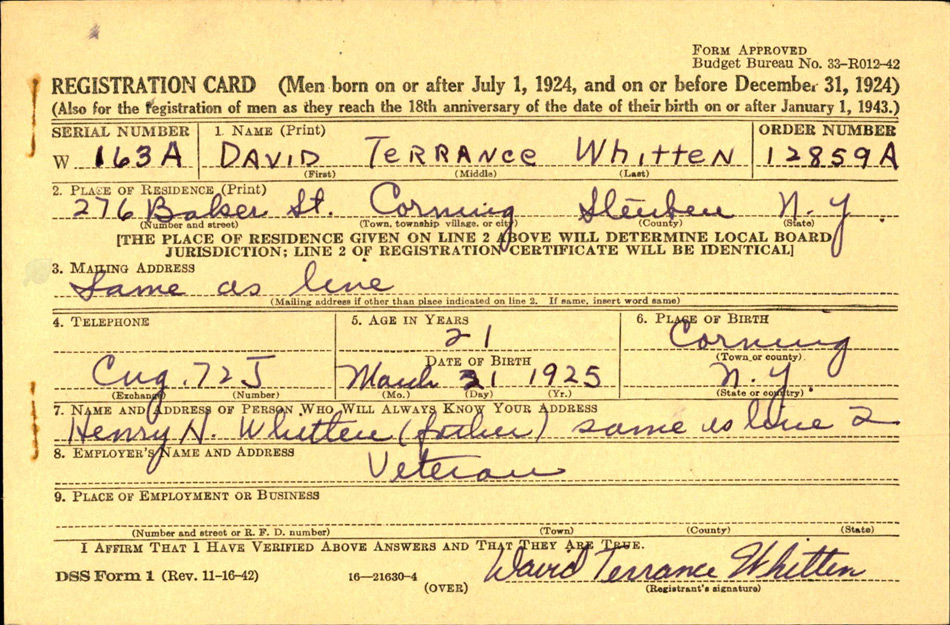 FORM APPROVED
Budget Bureau No. 33-R012-42
REGISTRATION CARD (Men born on or after July 1, 1924, and on or before December 31, 1924)
(Also for the registration of men as they reach the 18th anniversary of the date of their birth on or after January 1, 1943.)
SERIAL NUMBER 1. NAME (Print) ORDER NUMBER
W 163A DAVID TERRANCE WhiTTEN 12859A
(First) (Middle) (Last)
2. PLACE OF RESIDENCE (Print)
276 Baker St. Corning Steuben N.Y
(Number and street) (Town, township, village, or city) (County) (State)
[THE PLACE OF RESIDENCE GIVEN ON LINE 2 ABOVE WILL DETERMINE LOCAL BOARD
JURISDICTION; LINE 2 OF REGISTRATION CERTIFICATE WILL BE IDENTICAL]
3. MAILING ADDRESS
Same as line
(Mailing address if other than place indicated on line 2. If same, insert word same)
4. TELEPHONE 5. AGE IN YEARS 6. PLACE OF BIRTH
21 Corning
DATE OF BIRTH (Town or county)
72J March 21 1925 N.Y.
(Exchange) (Number) (Mo.) (Day) (Yr.) (State or country)
7. NAME AND ADDRESS OF PERSON WHO WILL ALWAYS KNOW YOUR ADDRESS
Henry N. Whitten (father) same as line 2
8. EMPLOYER'S NAME AND ADDRESS
Veteran
9. PLACE OF EMPLOYMENT OR BUSINESS
(Number and street or R. F. D. number) (Town) (County) (State)
I AFFIRM THAT I HAVE VERIFIED ABOVE ANSWERS AND THAT THEY ARE TRUE.
DSS Form 1 (Rev. 11-16-42) 16—21630-4 (OVER) David Terrance Whitten
(Registrant's signature)